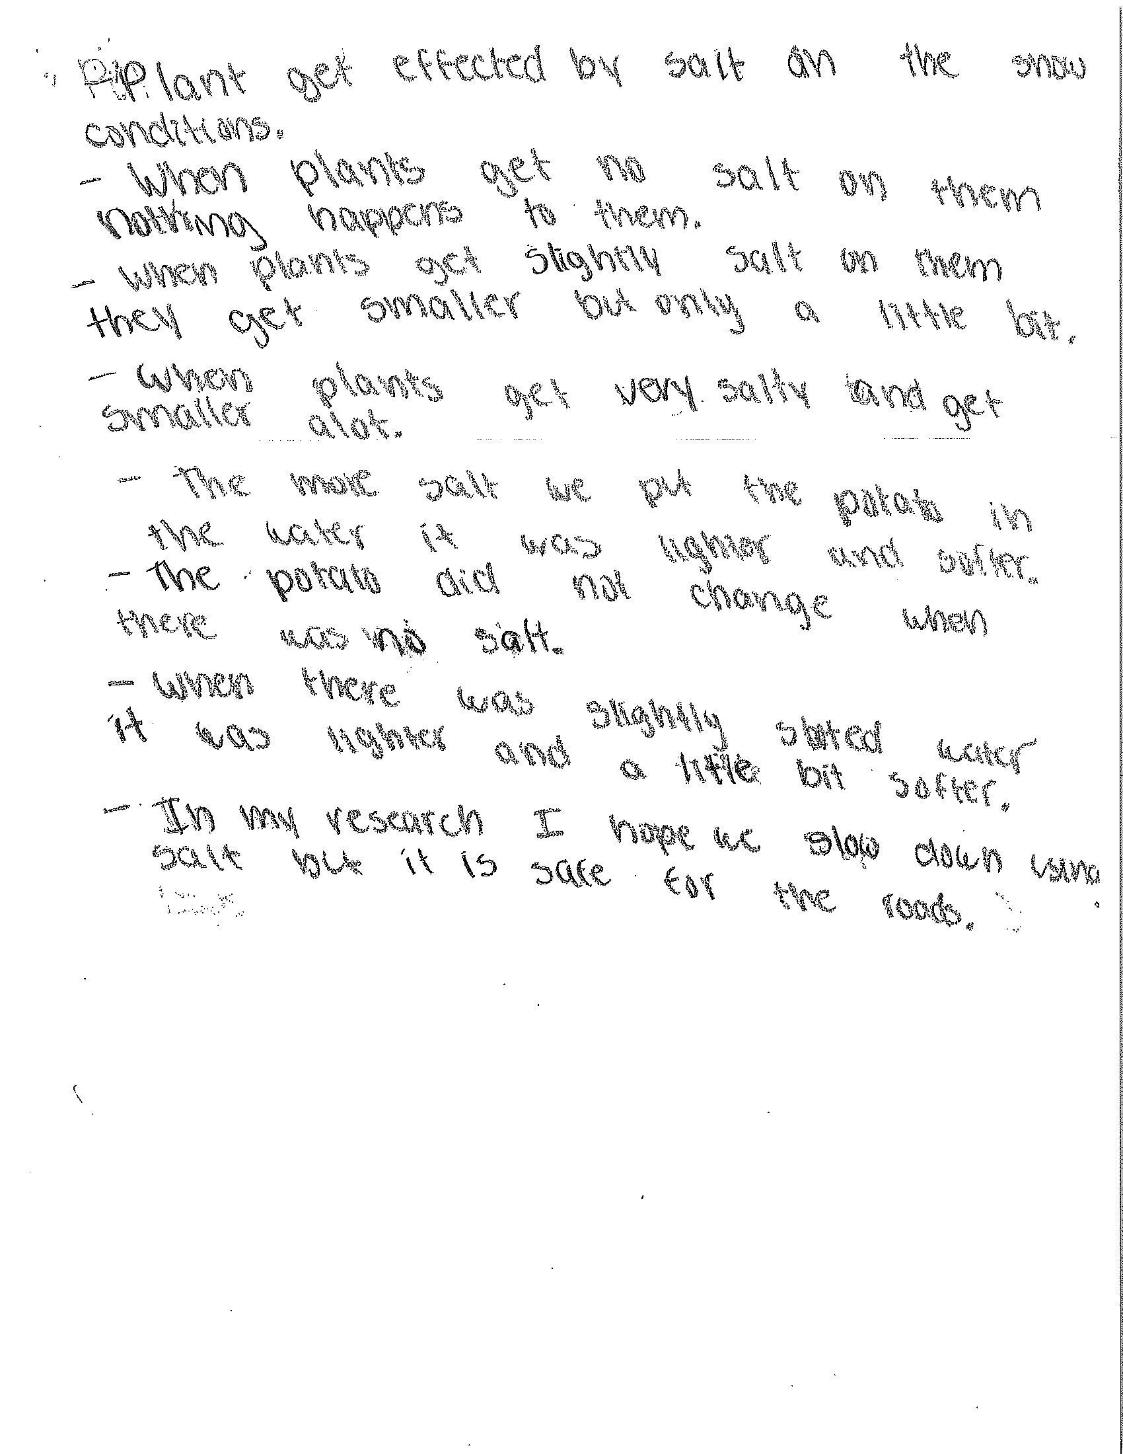 Plant get effected by salt on the snow
conditions.
- When plants get no salt on them
nothing happens to them.
- When plants get slightly salt on them
they get smaller but only a little bit.
- When plants get very salty and get
smaller alot.
- The more salt we put the potato in
the water it was lighter and softer.
- The potato did not change when
there was no salt.
- When there was slightly slated water
it was lighter and a little bit softer.
- In my research I hope we slow down using
salt but it is safe for the roads.